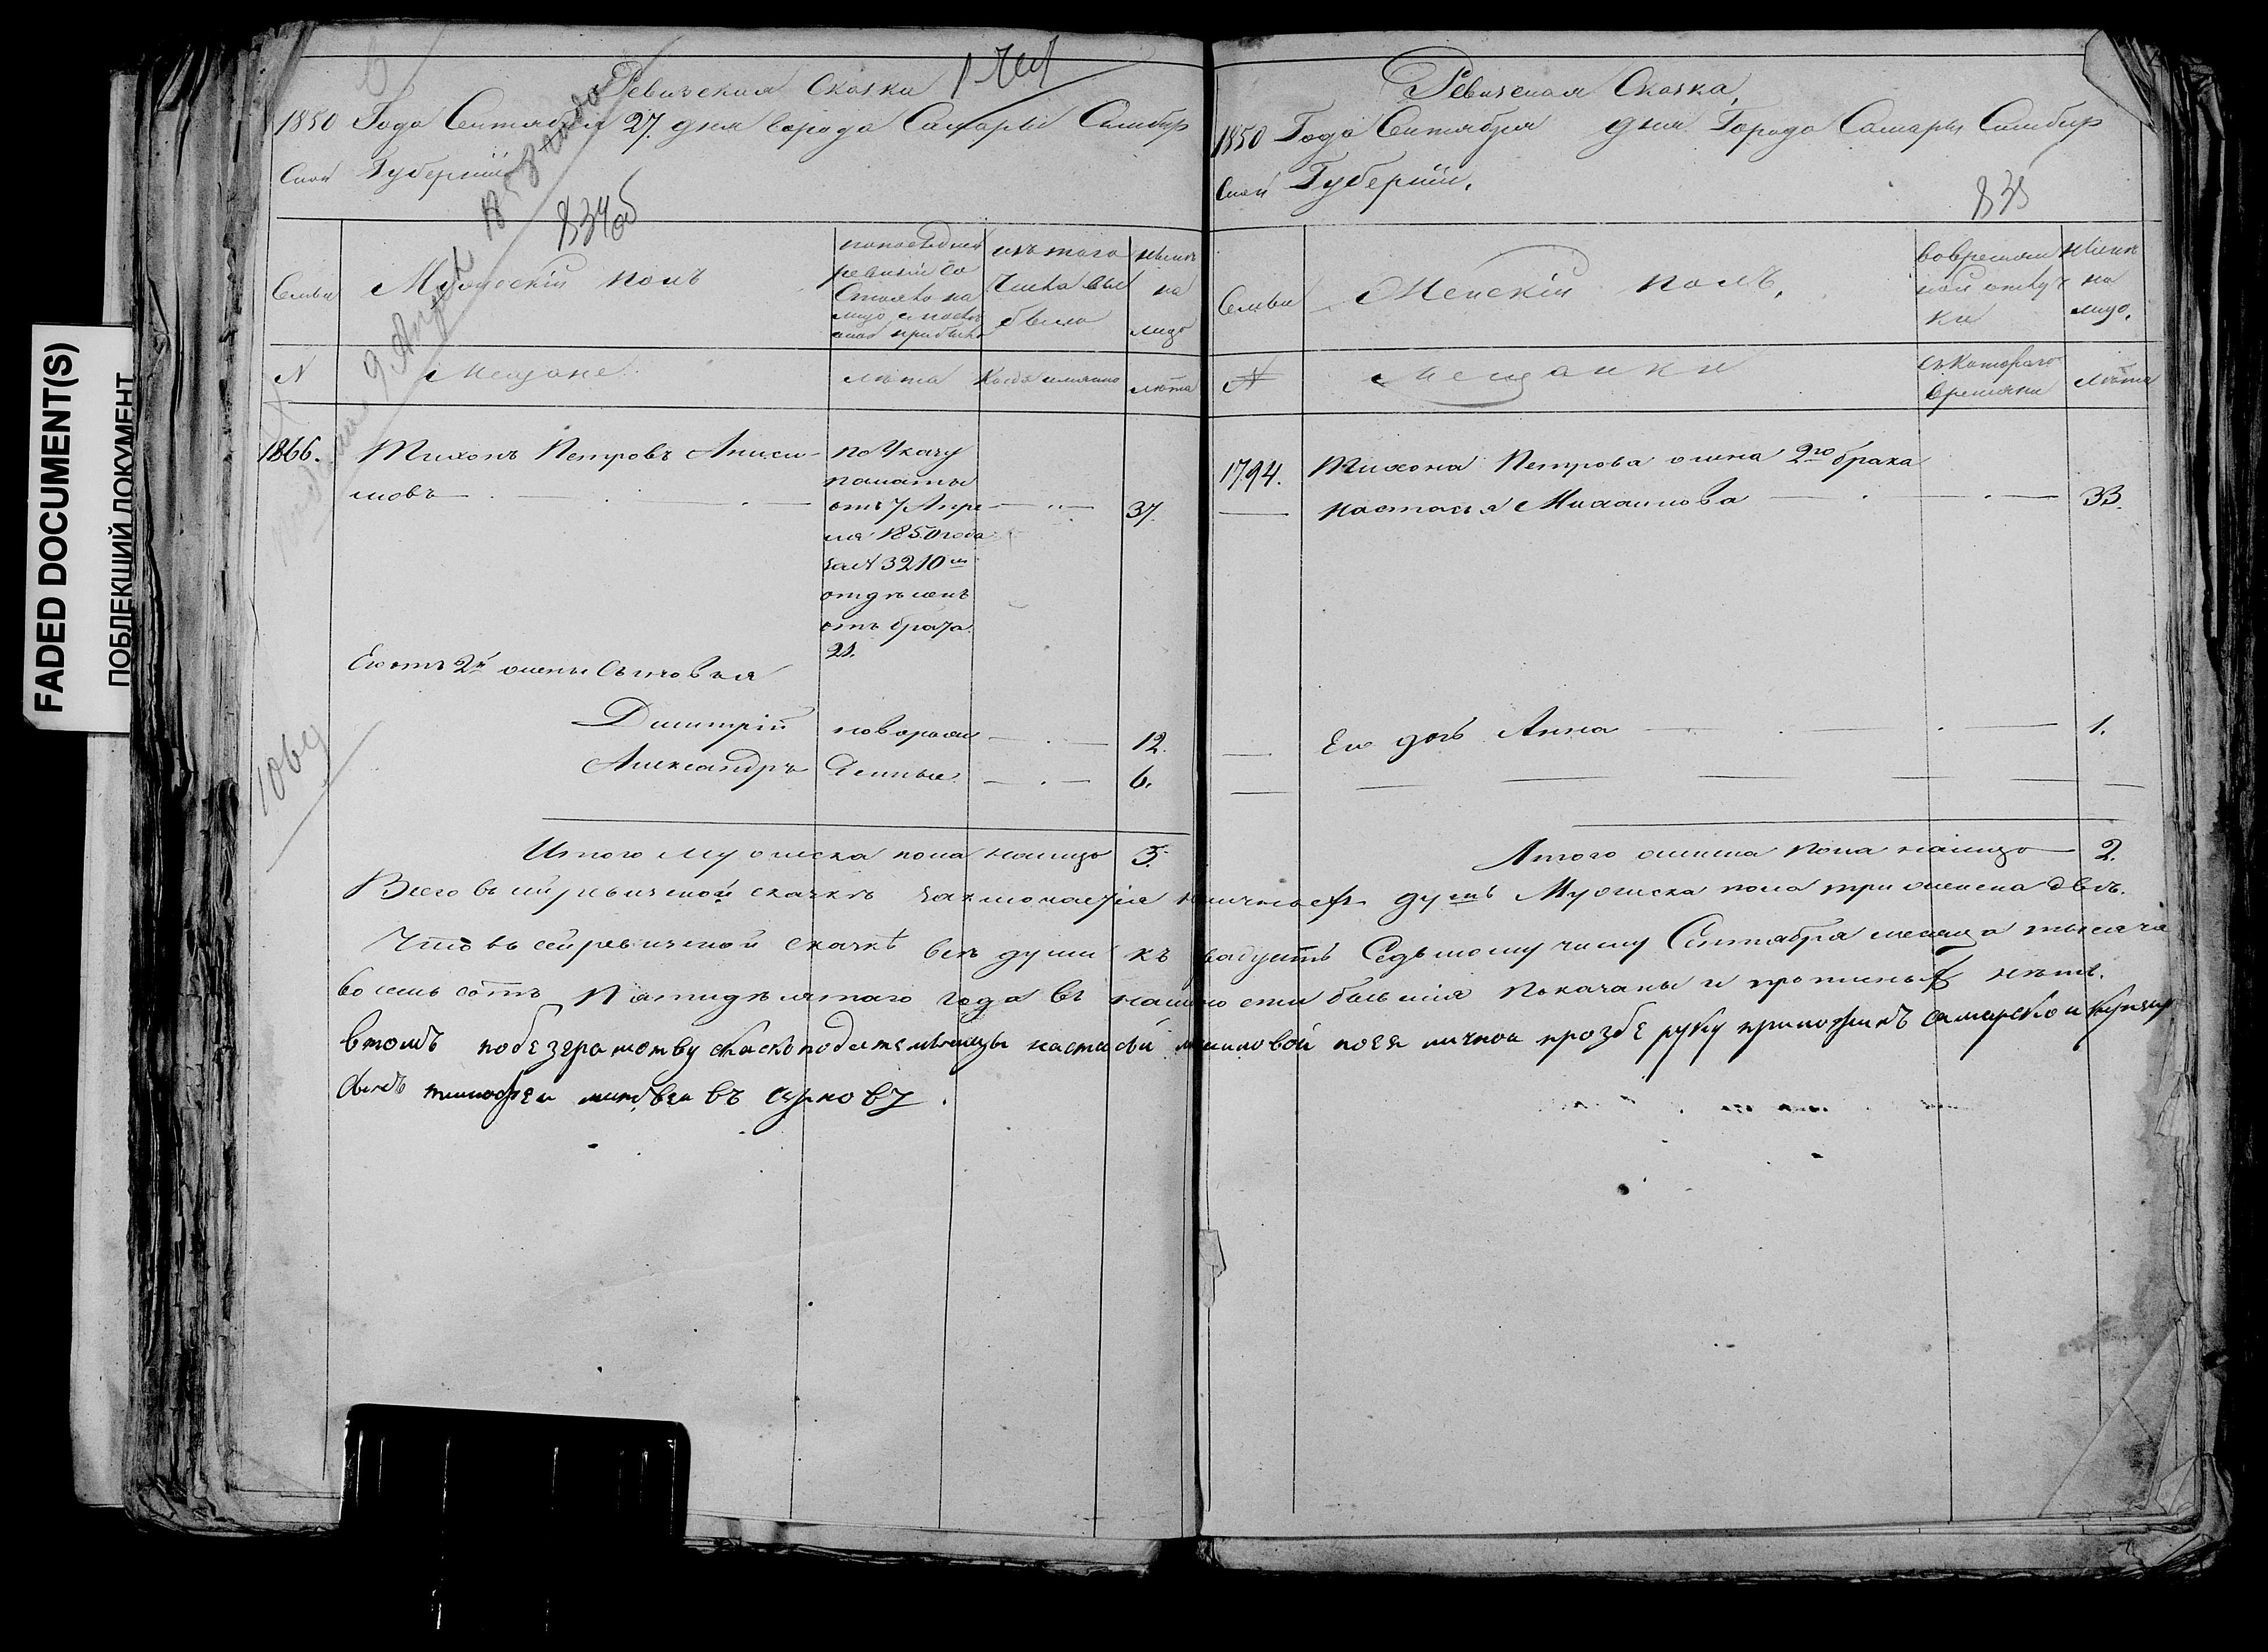 FADED DOCUMENT(S)
ПОБЛЕКШИЙ ДОКУМЕНТ
Ревизская Сказка
1850 Года Сентября 27. дня Города Самары Симбир
ской Губернии
834об
Семьи
Мужеский полъ
по последней
ревизии со
стояло на
лицо и после
оной прибыло
изъ того
числа вы
было
ныне
на
лицо
N
Мещане
лета
Когда именно
лета
1866.
Тихонъ Петровъ Аниси
мовъ
по Указу
палаты
отъ 7 Апре
ля 1850 года
за N 3210м
отделенъ
отъ брата
21.
37.
Его отъ 2й жены Сыновья
Димитрій
новорож
12.
Александръ
денные
6.
1069
Итого мужеска пола налицо 3.
Ревизская Сказка,
1850 Года Сентября дня Города Самары Симбир
ской Губернии.
835
Семьи
Женскій полъ,
во времян
ной отлуч
ки
ныне
на
лицо.
N
Мещанки
съ котораго
времяни
лета
1794.
Тихона Петрова жена 2го брака
Настасья Михаилова
33.
Его дочь Анна
1.
Итого женска пола налицо 2.
Всего въ сей ревизской сказкѣ заключается наличныхъ душъ Мужеска пола три женска двѣ.
Что въ сей ревизской сказкѣ все души къ двадцать Седьмому числу Сентября месяца тысяча
восемь сотъ Пятидесятаго года въ наличности бывшія показаны и прописныхъ нетъ.
втомъ побезграмотву сказкоподательницы настасьи михаиловой поея личной прозбе руку приложилъ самарской купеческ
сынъ тимофеи матвеивъ